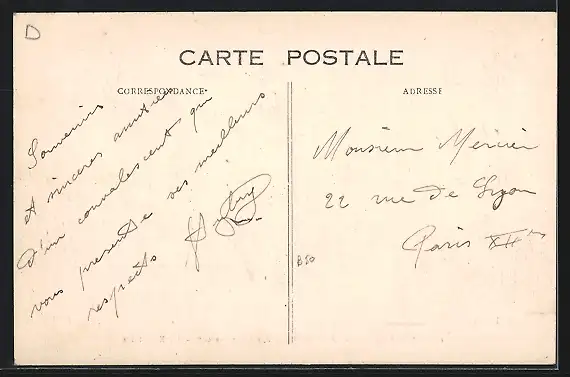 D
CARTE POSTALE
CORRESPONDANCE
ADRESSE
Souvenirs
et sincères amitiés
d'un convalescent qui
vous présente ses meilleurs
respects
Monsieur Mercier
22 rue de Lyon
Paris XIIme
B50